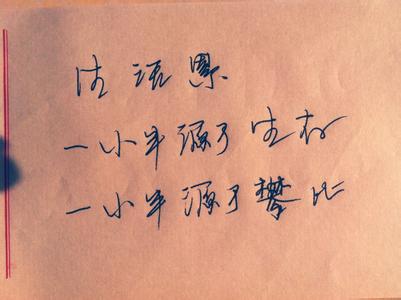 生活累
一小半源于生存
一小半源于攀比